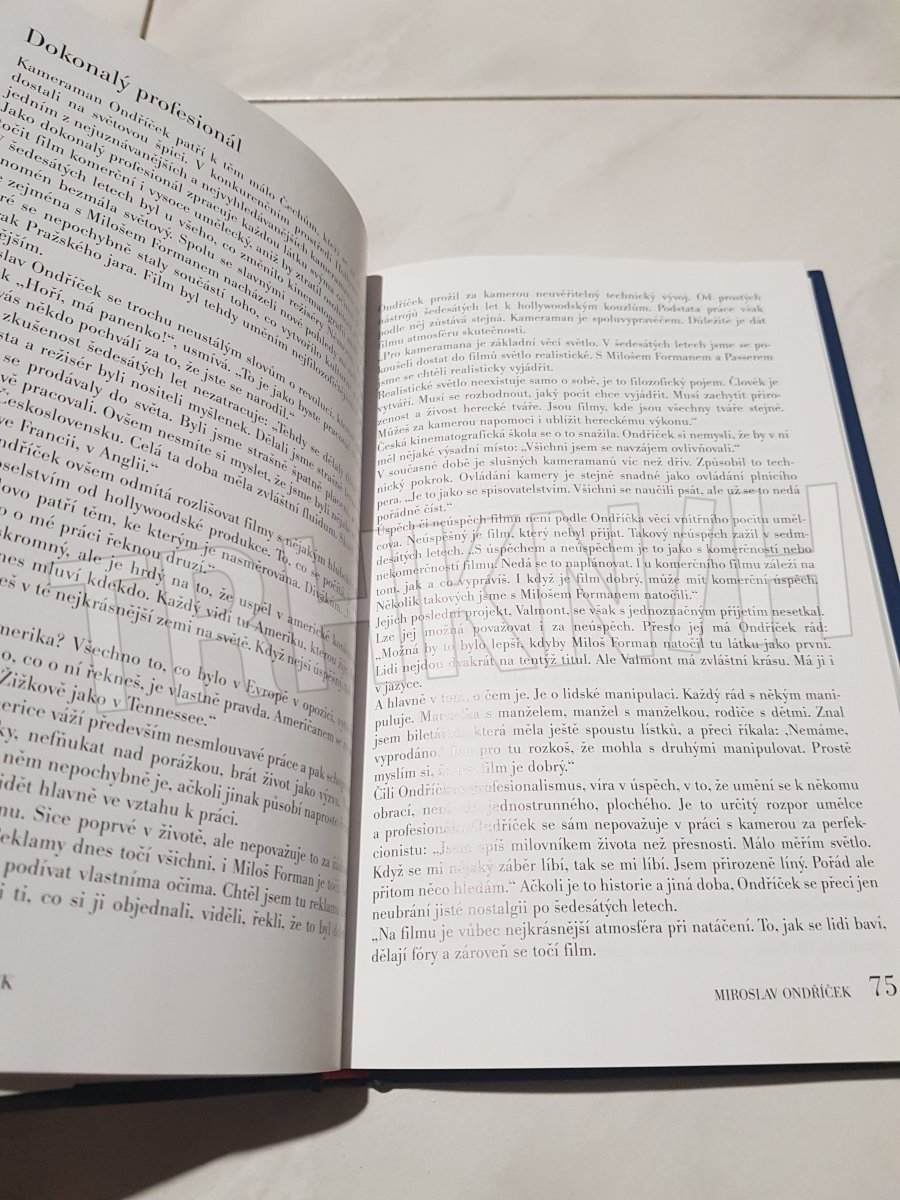 Dokonalý profesionál
Kameraman Ondříček patří k těm málo Čechům, kteří se
dostali na světovou špici. V konkurenčním prostředí
jedním z nejuznávanějších a nejvyhledávanějších kameramanů
Jako dokonalý profesionál zpracuje každou látku svým
film komerční i vysoce umělecký, aniž by ztratil osobitost
šedesátých letech byl u všeho, co změnilo
bezmála světový. Spolu se slavnými režiséry
zejména s Milošem Formanem nacházeli nové pohledy
se nepochybně staly součástí toho, co vytvořilo
Pražského jara. Film byl tehdy uměním nejfilozofičtějším
Ondříček se trochu neustálým slovům o revoluci,
„Hoří, má panenko!“, usmívá. „To je jako byste
vás někdo pochválí za to, že jste se narodil.“
zkušenost šedesátých let nezatracuje: „Tehdy se dělaly
a režisér byli nositeli myšlenek. Dělali jsme
se prodávaly do světa. Byli jsme strašně špatně placeni
pracovali. Ovšem nesmíte si myslet, že jsme byli
Československu. Celá ta doba měla zvláštní fluidum.
ve Francii, v Anglii.“
ovšem odmítá rozlišovat filmy s nějakým
poselstvím od hollywoodské produkce. To, co se počítá,
patří těm, ke kterým je nasměrována. Divákem.
o mé práci řeknou druzí.“
skromný, ale je hrdý na to, že uspěl v americké
dnes mluví kdekdo. Každý vidí tu Ameriku, kterou
v té nejkrásnější zemi na světě. Když nejsi úspěšný,
Amerika? Všechno to, co bylo v Evropě v opozici,
co o ní řekneš, je vlastně pravda. Američanem se
Žižkově jako v Tennessee.“
váží především nesmlouvavé práce a pak
nefňukat nad porážkou, brát život jako výzvu.
něm nepochybně je, ačkoli jinak působí naprosto
hlavně ve vztahu k práci.
Sice poprvé v životě, ale nepovažuje to za
reklamy dnes točí všichni, i Miloš Forman je
podívat vlastníma očima. Chtěl jsem tu reklamu
i ti, co si ji objednali, viděli, řekli, že to byl
Ondříček prožil za kamerou neuvěřitelný technický vývoj. Od prostých
nástrojů šedesátých let k hollywoodským kouzlům. Podstata práce však
podle něj zůstává stejná. Kameraman je spoluvypravěčem. Důležité je dát
filmu atmosféru skutečnosti.
„Pro kameramana je základní věcí světlo. V šedesátých letech jsme se po-
koušeli dostat do filmů světlo realistické. S Milošem Formanem a Passerem
jsme se chtěli realisticky vyjádřit.
Realistické světlo neexistuje samo o sobě, je to filozofický pojem. Člověk je
vytváří. Musí se rozhodnout, jaký pocit chce vyjádřit. Musí zachytit přiro-
zenost a živost herecké tváře. Jsou filmy, kde jsou všechny tváře stejné.
Můžeš za kamerou napomoci i ublížit hereckému výkonu.“
Česká kinematografická škola se o to snažila. Ondříček si nemyslí, že by v ní
měl nějaké výsadní místo: „Všichni jsem se navzájem ovlivňovali.“
V současné době je slušných kameramanů víc než dřív. Způsobil to tech-
nický pokrok. Ovládání kamery je stejně snadné jako ovládání plnicího
pera. „Je to jako se spisovatelstvím. Všichni se naučili psát, ale už se to nedá
pořádně číst.“
Úspěch či neúspěch filmu není podle Ondříčka věcí vnitřního pocitu uměl-
cova. Neúspěšný je film, který nebyl přijat. Takový neúspěch zažil v sedm-
desátých letech. „S úspěchem a neúspěchem je to jako s komerčností nebo
nekomerčností filmu. Nedá se to naplánovat. I u komerčního filmu záleží na
tom, jak a co vyprávíš. I když je film dobrý, může mít komerční úspěch.
Několik takových jsme s Milošem Formanem natočili.“
Jejich poslední projekt, Valmont, se však s jednoznačným přijetím nesetkal.
Lze jej možná považovat i za neúspěch. Přesto jej má Ondříček rád:
„Možná by to bylo lepší, kdyby Miloš Forman natočil tu látku jako první.
Lidi nejdou dvakrát na tentýž titul. Ale Valmont má zvláštní krásu. Má ji i
v jazyce.
A hlavně v tom, o čem je. Je o lidské manipulaci. Každý rád s někým mani-
puluje. Manželka s manželem, manžel s manželkou, rodiče s dětmi. Znal
jsem biletářku, která měla ještě spoustu lístků, a přeci říkala: „Nemáme,
vyprodáno.“ pro tu rozkoš, že mohla s druhými manipulovat. Prostě
myslím si, že ten film je dobrý.“
Čili Ondříčkův profesionalismus, víra v úspěch, v to, že umění se k někomu
obrací, není jednostrunného, plochého. Je to určitý rozpor umělce
a profesionála. Ondříček se sám nepovažuje v práci s kamerou za perfek-
cionistu: „Jsem spíš milovníkem života než přesnosti. Málo měřím světlo.
Když se mi nějaký záběr líbí, tak se mi líbí. Jsem přirozeně líný. Pořád ale
přitom něco hledám.“ Ačkoli je to historie a jiná doba, Ondříček se přeci jen
neubrání jisté nostalgii po šedesátých letech.
„Na filmu je vůbec nejkrásnější atmosféra při natáčení. To, jak se lidi baví,
dělají fóry a zároveň se točí film.
MIROSLAV ONDŘÍČEK 75
TRHKNIH